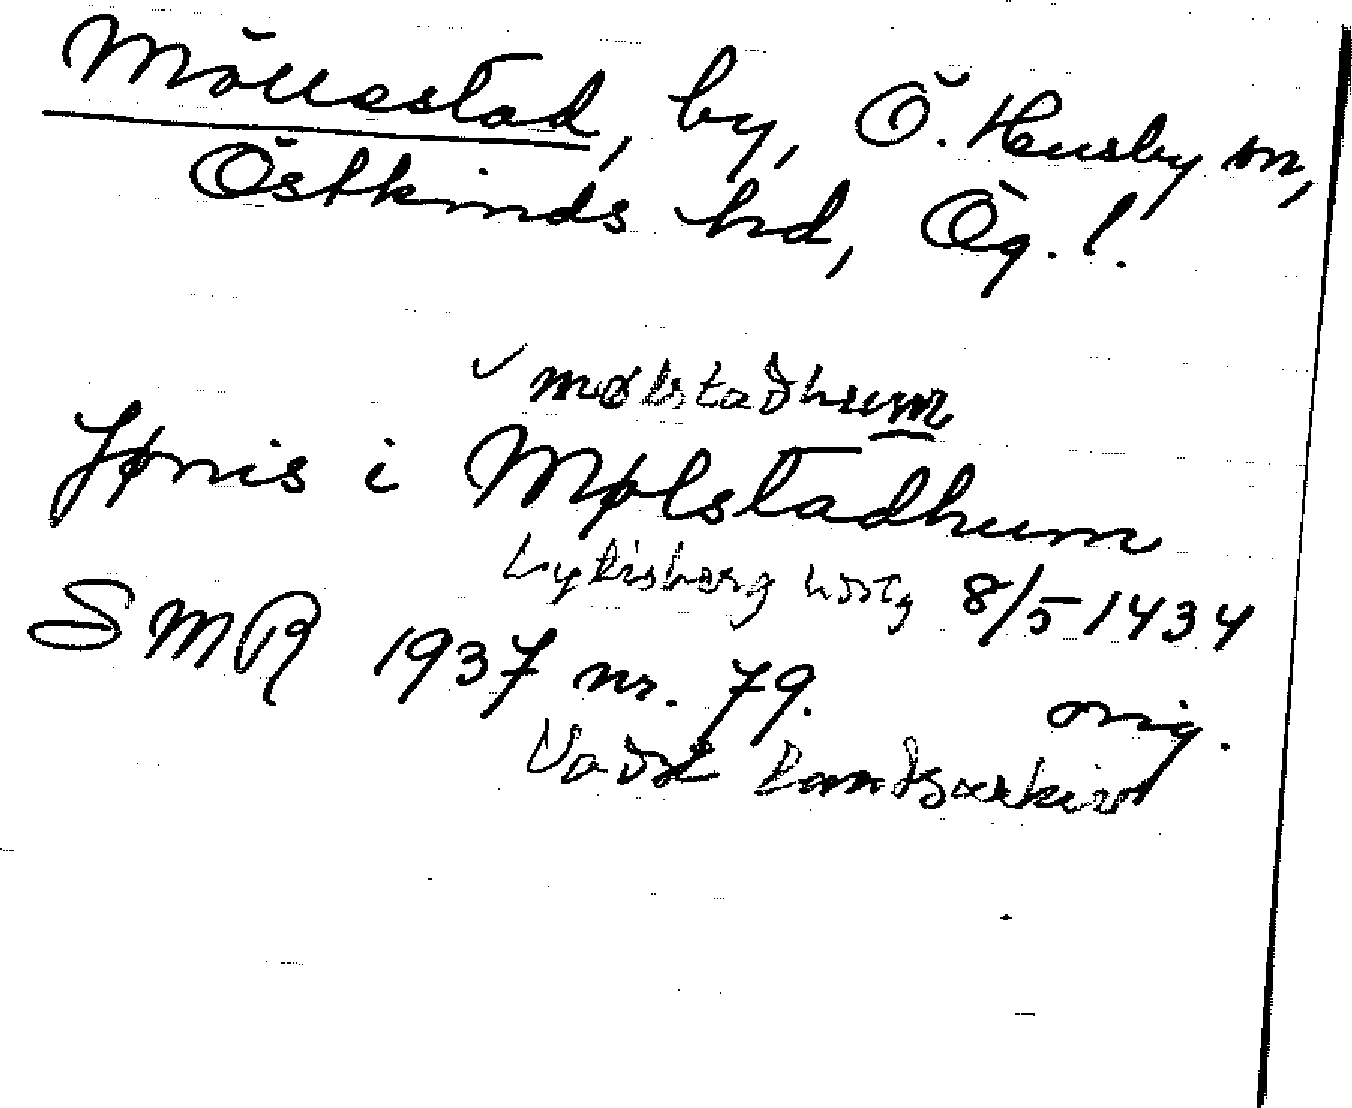 Möllestad, by, Ö. Husby sn,
Östkinds hd, Ög. l.
mølstaðhum
Jønis i Mølstadhum
Lytisberg 8/5 1434
SMR 1937 nr. 79. orig.
Vadst Landsarkiv